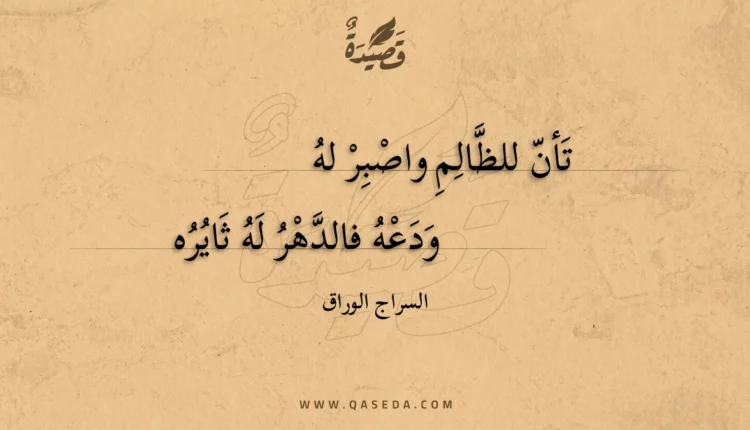 قَصِيدَةٌ
تَأنّ للظَّالِمِ واصْبِرْ لهُ
وَدَعْهُ فالدَّهْرُ لَهُ ثَايُرُه
السراج الوراق
WWW.QASEDA.COM